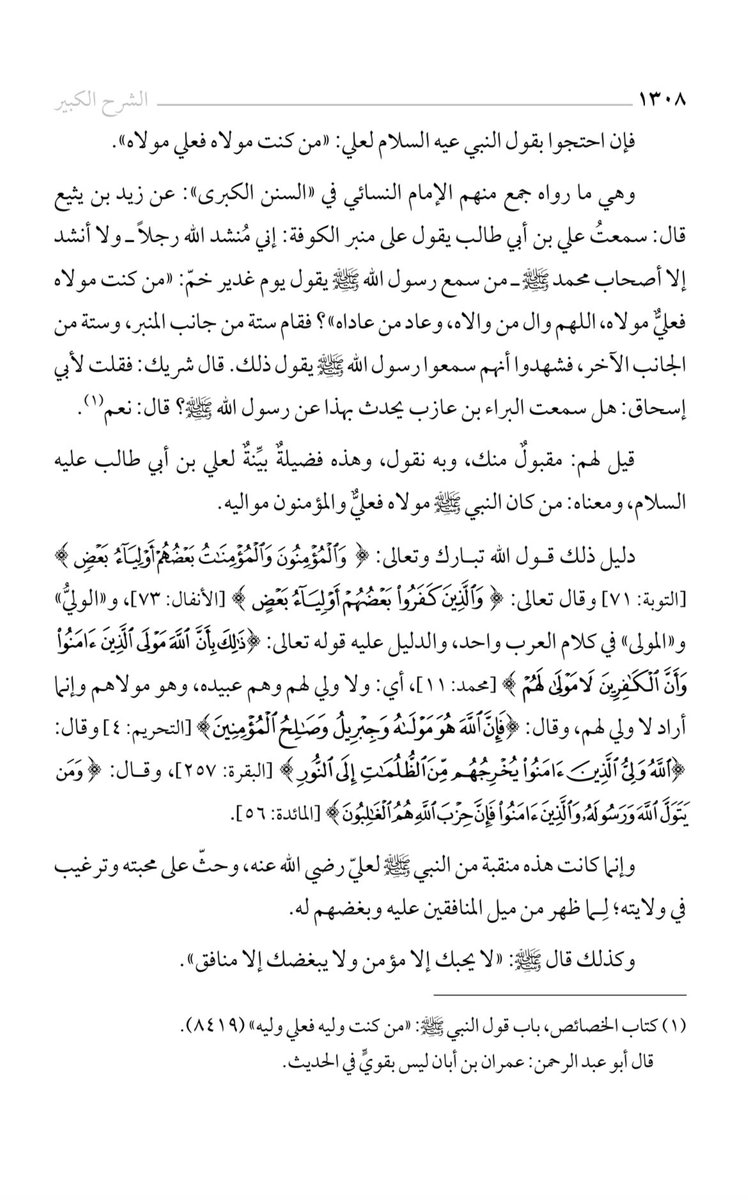 ١٣٠٨ الشرح الكبير
فإن احتجوا بقول النبي عيه السلام لعلي: «من كنت مولاه فعلي مولاه».
وهي ما رواه جمع منهم الإمام النسائي في «السنن الكبرى»: عن زيد بن يثيع
قال: سمعتُ علي بن أبي طالب يقول على منبر الكوفة: إني مُنشد الله رجلاً ـ ولا أنشد
إلا أصحاب محمد ﷺ ـ من سمع رسول الله ﷺ يقول يوم غدير خمّ: «من كنت مولاه
فعليٌّ مولاه، اللهم وال من والاه، وعاد من عاداه»؟ فقام ستة من جانب المنبر، وستة من
الجانب الآخر، فشهدوا أنهم سمعوا رسول الله ﷺ يقول ذلك. قال شريك: فقلت لأبي
إسحاق: هل سمعت البراء بن عازب يحدث بهذا عن رسول الله ﷺ؟ قال: نعم(١).
قيل لهم: مقبولٌ منك، وبه نقول، وهذه فضيلةٌ بيِّنةٌ لعلي بن أبي طالب عليه
السلام، ومعناه: من كان النبي ﷺ مولاه فعليٌّ والمؤمنون مواليه.
دليل ذلك قول الله تبارك وتعالى: ﴿ وَٱلْمُؤْمِنُونَ وَٱلْمُؤْمِنَٰتُ بَعْضُهُمْ أَوْلِيَآءُ بَعْضٍ ﴾
[التوبة: ٧١] وقال تعالى: ﴿ وَٱلَّذِينَ كَفَرُوا۟ بَعْضُهُمْ أَوْلِيَآءُ بَعْضٍ ﴾ [الأنفال: ٧٣]، و«الوليُّ»
و«المولى» في كلام العرب واحد، والدليل عليه قوله تعالى: ﴿ذَٰلِكَ بِأَنَّ ٱللَّهَ مَوْلَى ٱلَّذِينَ ءَامَنُوا۟
وَأَنَّ ٱلْكَٰفِرِينَ لَا مَوْلَىٰ لَهُمْ ﴾ [محمد: ١١]، أي: ولا ولي لهم وهم عبيده، وهو مولاهم وإنما
أراد لا ولي لهم، وقال: ﴿فَإِنَّ ٱللَّهَ هُوَ مَوْلَىٰهُ وَجِبْرِيلُ وَصَٰلِحُ ٱلْمُؤْمِنِينَ﴾ [التحريم: ٤] وقال:
﴿ٱللَّهُ وَلِىُّ ٱلَّذِينَ ءَامَنُوا۟ يُخْرِجُهُم مِّنَ ٱلظُّلُمَٰتِ إِلَى ٱلنُّورِ ﴾ [البقرة: ٢٥٧]، وقال: ﴿ وَمَن
يَتَوَلَّ ٱللَّهَ وَرَسُولَهُۥ وَٱلَّذِينَ ءَامَنُوا۟ فَإِنَّ حِزْبَ ٱللَّهِ هُمُ ٱلْغَٰلِبُونَ﴾ [المائدة: ٥٦].
وإنما كانت هذه منقبة من النبي ﷺ لعليّ رضي الله عنه، وحثّ على محبته وترغيب
في ولايته؛ لِـما ظهر من ميل المنافقين عليه وبغضهم له.
وكذلك قال ﷺ: «لا يحبك إلا مؤمن ولا يبغضك إلا منافق».
(١) كتاب الخصائص، باب قول النبي ﷺ: «من كنت وليه فعلي وليه» (٨٤١٩).
قال أبو عبد الرحمن: عمران بن أبان ليس بقويٍّ في الحديث.